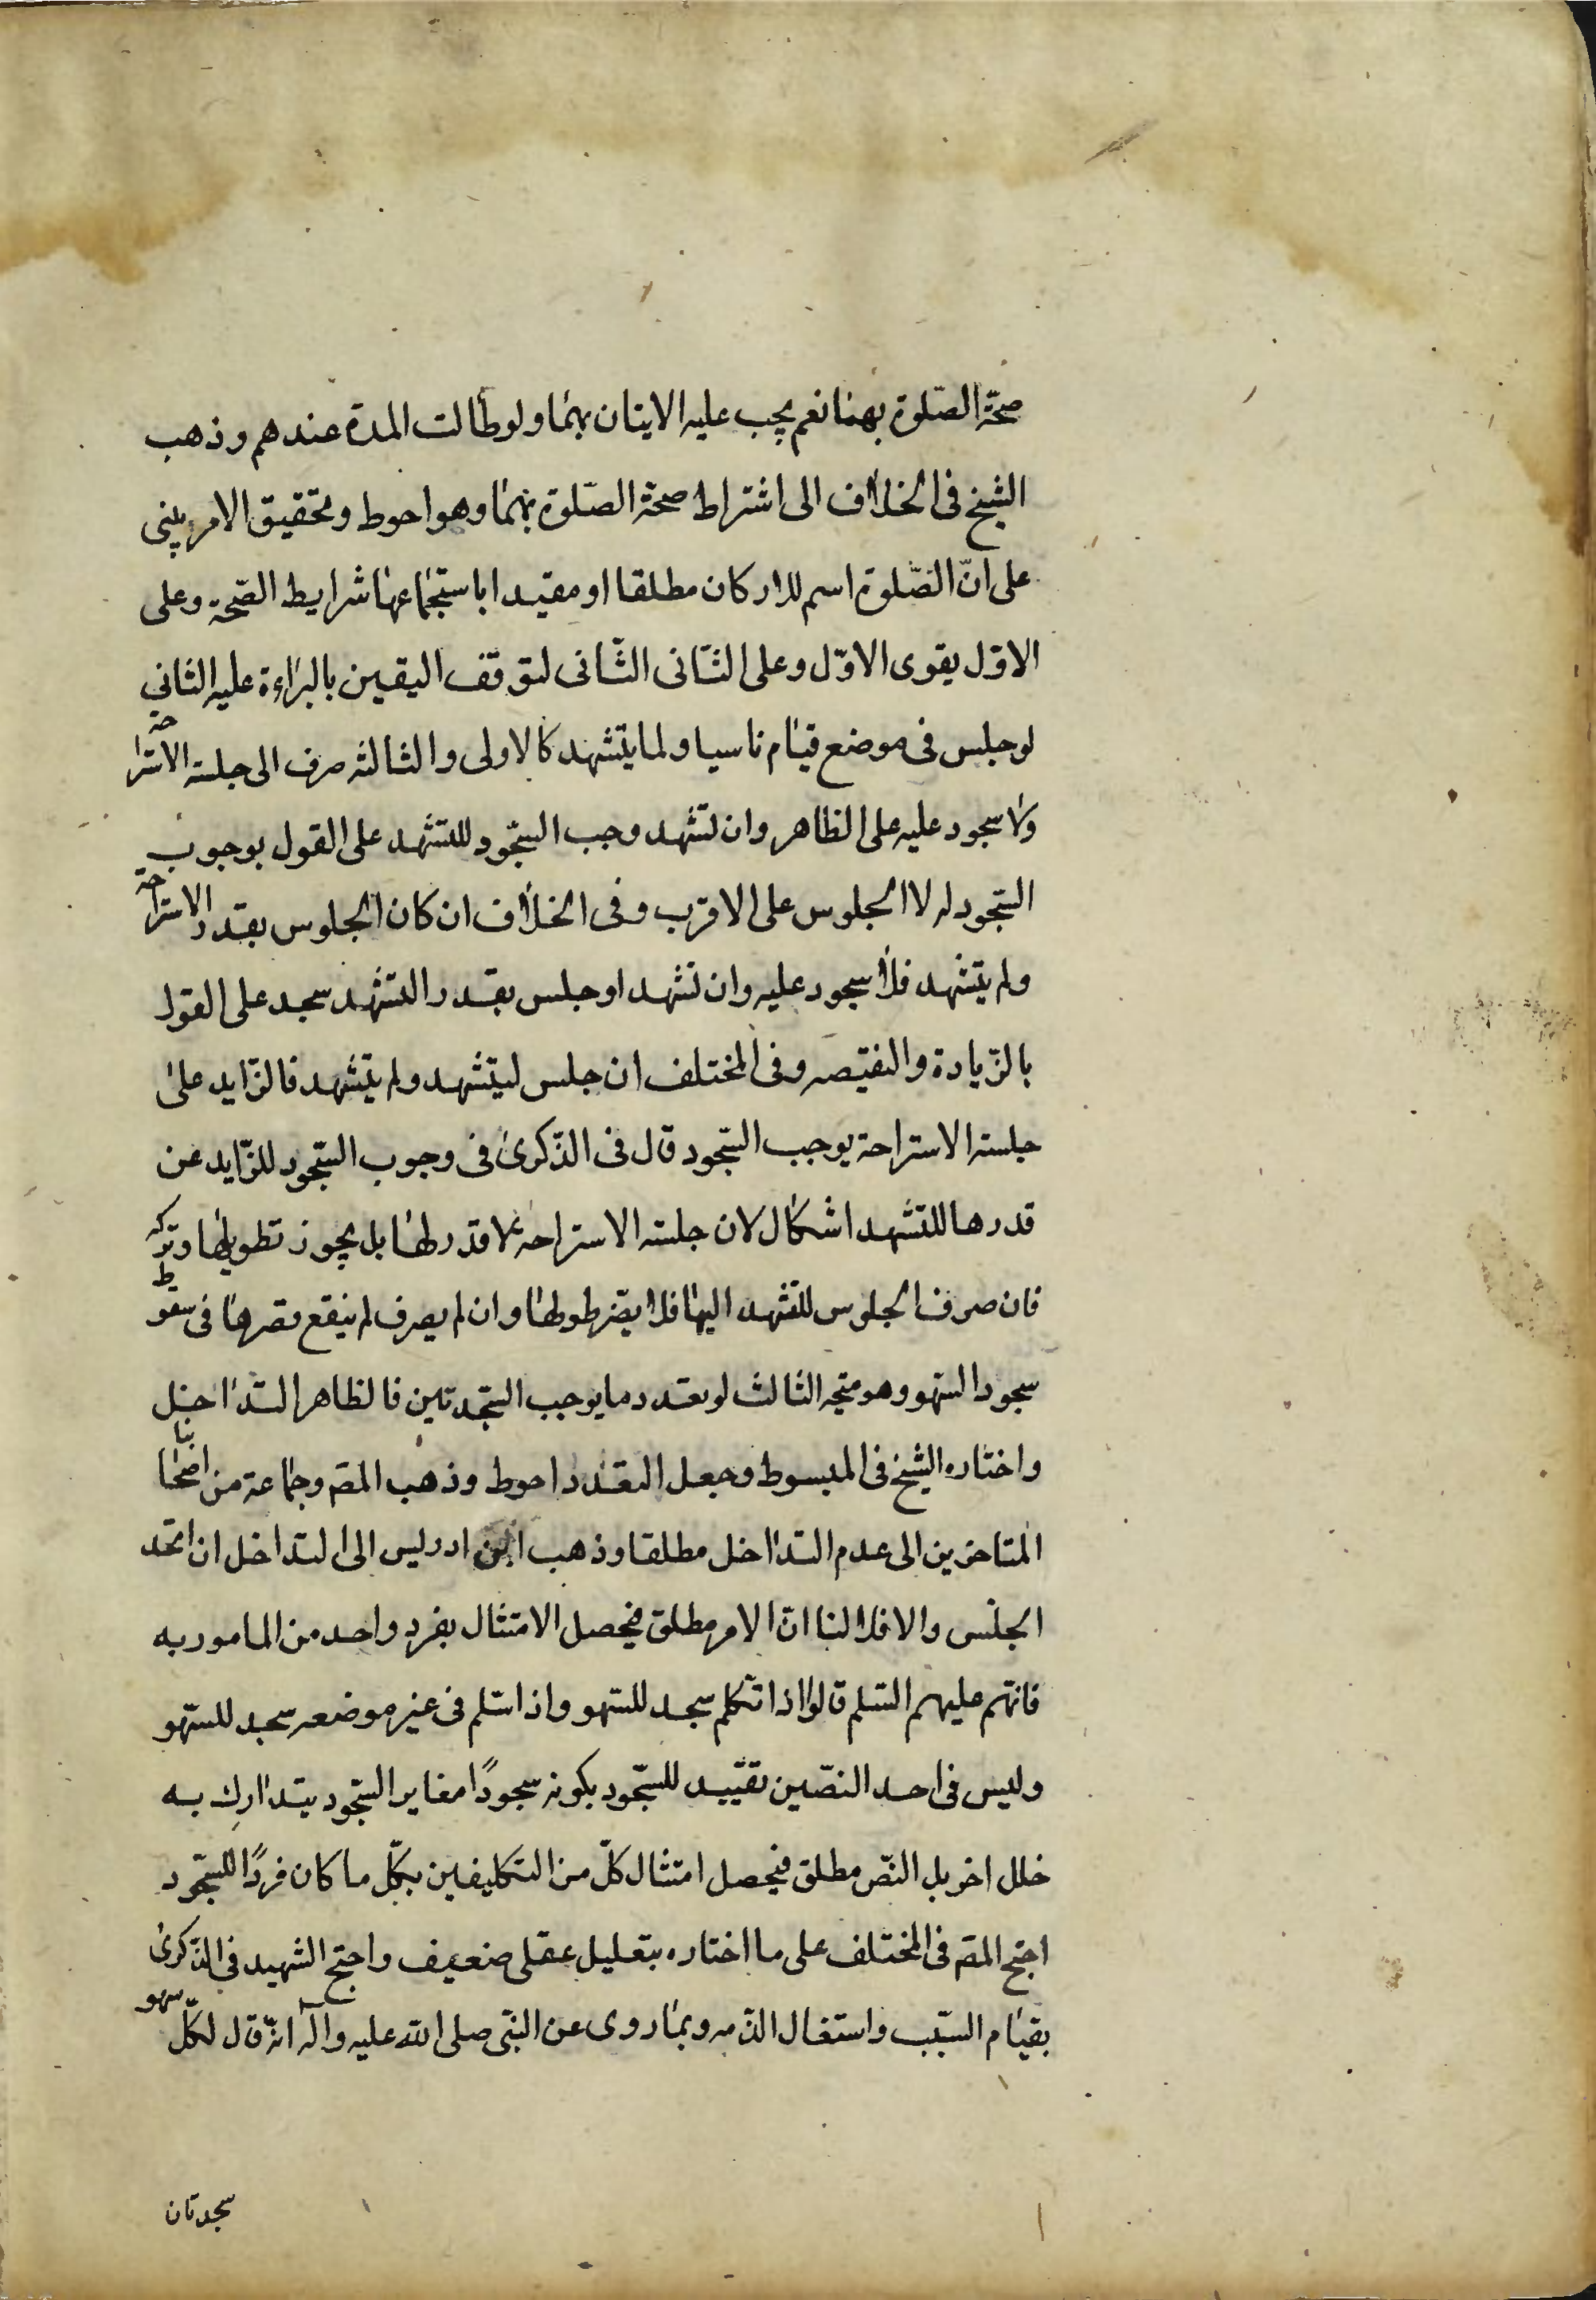 صحّة الصّلوة بهما نعم يجب عليه الاتيان بهما ولو طالت المدة عندهم وذهب
الشيخ فى الخلاف الى اشتراط صحّة الصّلوة بهما وهو احوط وتحقيق الامر يبنى
على انّ الصّلوة اسم للاركان مطلقا او مقيدا باستجماعها شرايط الصّحة وعلى
الاوّل يقوى الاوّل وعلى الثّانى الثّانى لتوقّف اليقين بالبراءة عليه الثانى
لو جلس فى موضع قيام ناسيا ولما يتشهد كالاولى والثالثه صرف الى جلسة الاستراحة
ولا سجود عليه على الظاهر وان تشهد وجب السّجود للتشهد على القول بوجوب
السّجود له لا الجلوس على الاقرب وفى الخلاف ان كان الجلوس بقدر الاستراحة
ولم يتشهد فلا سجود عليه وان تشهد او جلس بقدر التشهد سجد على القول
بالزّيادة والنقيصه وفى المختلف ان جلس ليتشهد ولم يتشهد فالزّايد على
جلسة الاستراحة يوجب السّجود قال فى الذّكرى فى وجوب السّجود للزّايد عن
قدرها للتشهد اشكال لان جلسة الاستراحة لا قدر لها بل يجوز تطويلها وتركه
فان صرف الجلوس للتشهد اليها فلا يضر طولها وان لم يصرف لم ينفع قصرها فى سقوط
سجود السّهو وهو متجه الثالث لو تعدد ما يوجب السّجدتين فالظاهر التداخل
واختاره الشيخ فى المبسوط وجعل التعدد احوط وذهب المصّ وجماعة من اصحابنا
المتاخرين الى عدم التداخل مطلقا وذهب ابن ادريس الى التداخل ان اتحد
الجنس والا فلا لنا انّ الامر مطلق فيحصل الامتثال بفرد واحد من المامور به
فانّهم عليهم السّلم قالوا اذا تكلم سجد للسّهو واذا سّلم فى غير موضعه سجد للسّهو
وليس فى احد النصّين تقييد للسّجود بكونه سجودًا مغاير السّجود يتدارك به
خلل اخر بل النصّ مطلق فيحصل امتثال كلّ من التكليفين بكلّ ما كان فردًا للسّجود
احتج المصّ فى المختلف على ما اختاره بتعليل عقلى ضعيف واحتج الشهيد فى الذّكرى
بقيام السّبب واستغال الذّمه وبما روى عن النبّى صلى الله عليه واله انّه قال لكلّ سهو
سجدتان